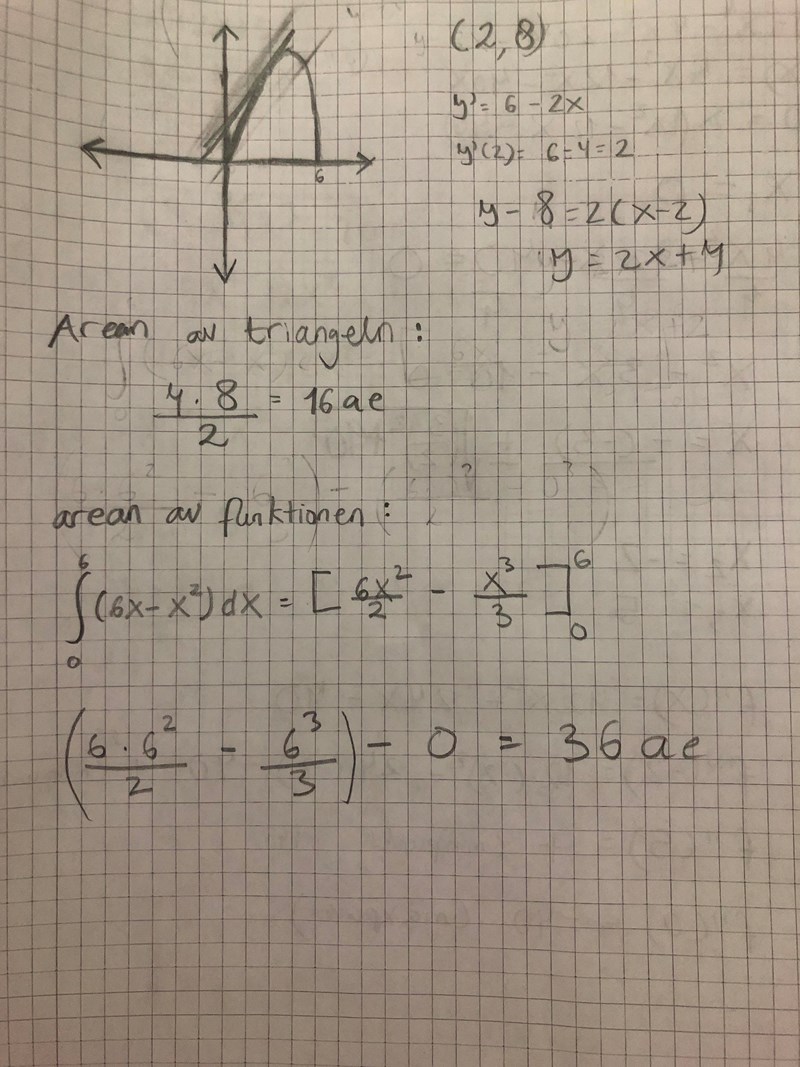 (2,8)
y' = 6 - 2x
y'(2) = 6-4 = 2
y - 8 = 2(x-2)
y = 2x+4
6
Arean av triangeln:
4·8/2 = 16 ae
arean av funktionen:
∫₀⁶ (6x - x²) dx = [6x²/2 - x³/3]₀⁶
(6·6²/2 - 6³/3) - 0 = 36 ae